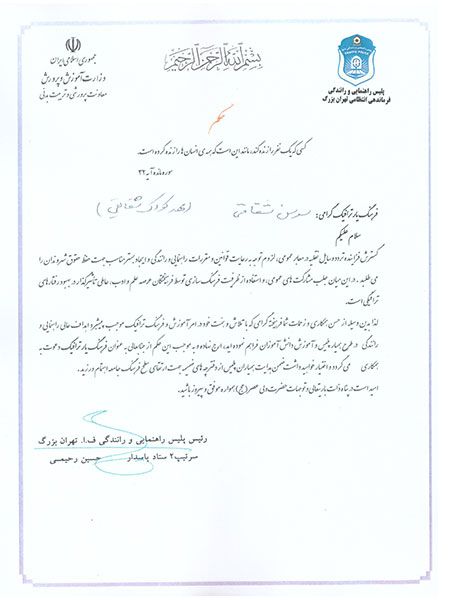 جمهوری اسلامی ایران
وزارت آموزش و پرورش
معاونت پرورشی و تربیت بدنی
بسم الله الرحمن الرحیم
پلیس راهنمایی و رانندگی
فرماندهی انتظامی تهران بزرگ
حکم
کسی که یک نفر را زنده کند، مانند این است که همه ی انسان ها را زنده کرده است.
سوره مائده آیه ۳۲
فرهنگ یار ترافیک گرامی: سوسن شقاقی (مهد کودک شقایق)
سلام علیکم
گسترش فزاینده تردد وسایل نقلیه در معابر عمومی، لزوم توجه به رعایت قوانین و مقررات راهنمایی و رانندگی و ایجاد بستر مناسب جهت حفظ حقوق شهروندان را
می طلبد. در این میان جلب مشارکت های عمومی، و استفاده از ظرفیت فرهنگ سازی توسط فرهیختگان عرصه علم و ادب، عاملی تاثیرگذار در بهبود رفتارهای
ترافیکی است.
لذا بدین وسیله از حسن همکاری و زحمات شما فرهیخته گرامی که با تلاش و همت خود در امر آموزش و فرهنگ ترافیک موجب پیشبرد اهداف عالی راهنمایی و
رانندگی در طرح همیار پلیس و آموزش دانش آموزان فراهم نموده اید، ارج نهاده و به موجب این حکم از جنابعالی به عنوان فرهنگ یار ترافیک دعوت به
همکاری می گردد و اختیار خواهید داشت ضمن هدایت همیاران پلیس از دفترچه های ضمیمه جهت ارتقای سطح فرهنگ جامعه اهتمام ورزید.
امید است در پناه ذات باریتعالی و توجهات حضرت ولی عصر (عج) همواره موفق و پیروز باشید.
رئیس پلیس راهنمایی و رانندگی ف.ا. تهران بزرگ
سرتیپ ۲ ستاد پاسدار حسین رحیمی